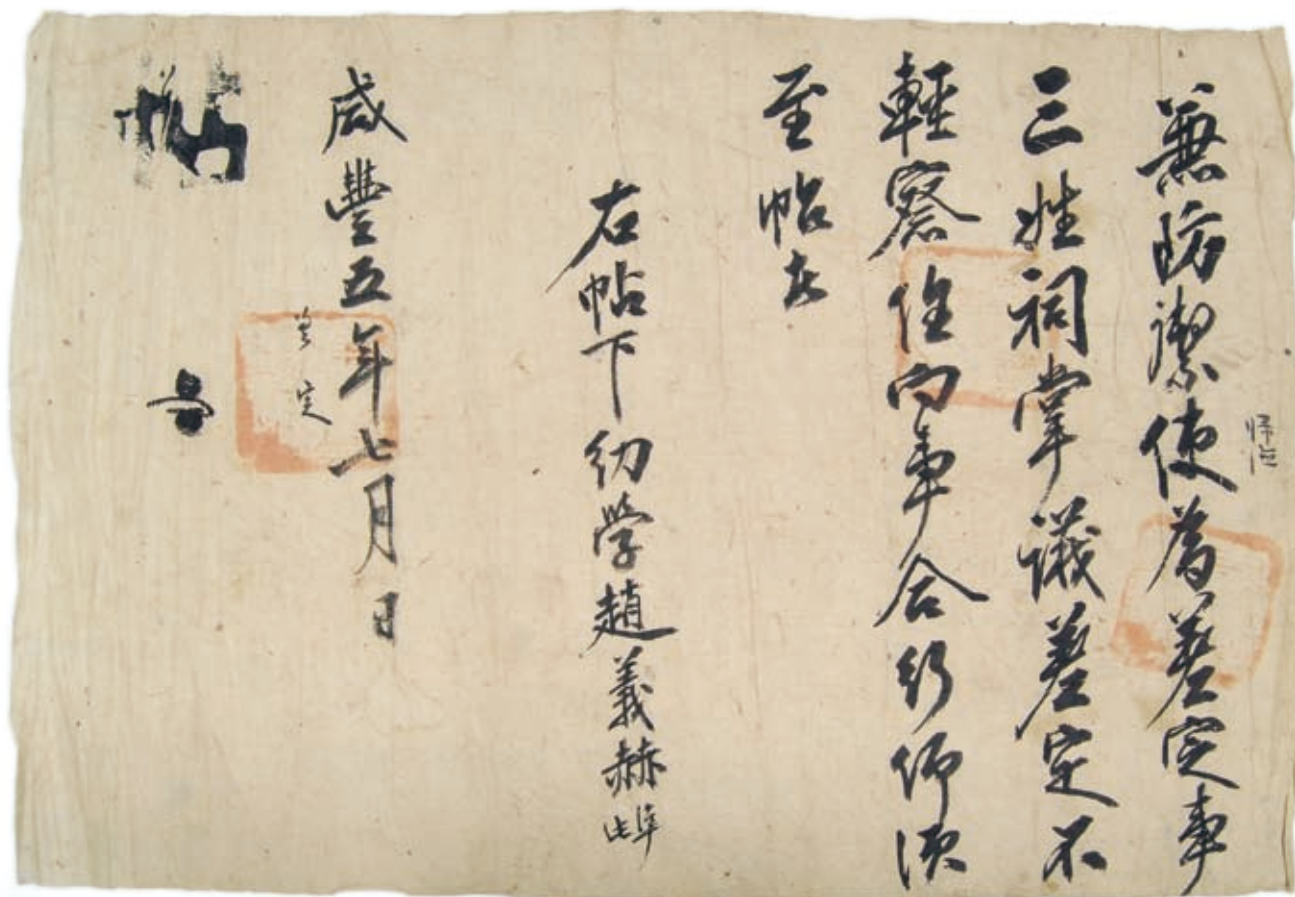 兼防禦使爲差定事
三姓祠掌議差定不
輕察任向事合行仰須
至帖者
右帖下幼學趙義赫此準
咸豐五年七月 日
差定